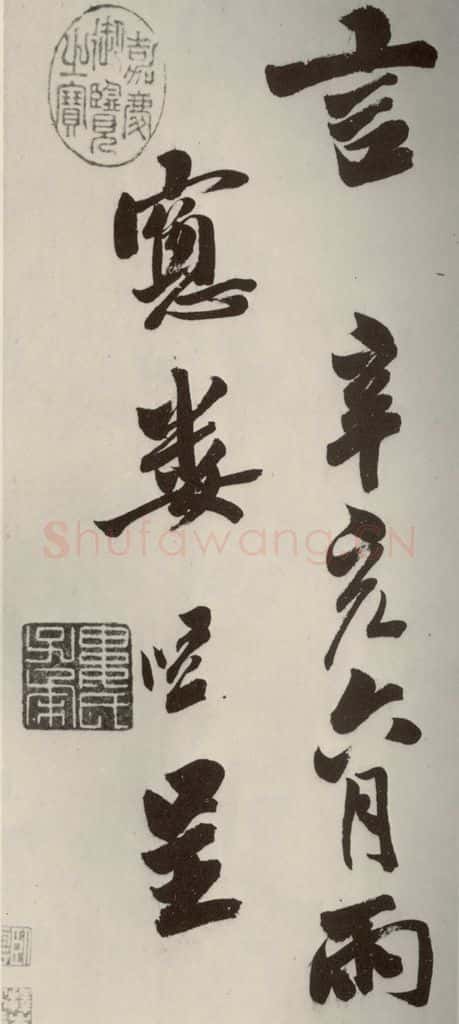 言 辛亥六月雨
窻婁堅呈
嘉慶
御覽
之寶
婁氏
子柔
Shufawang.CN